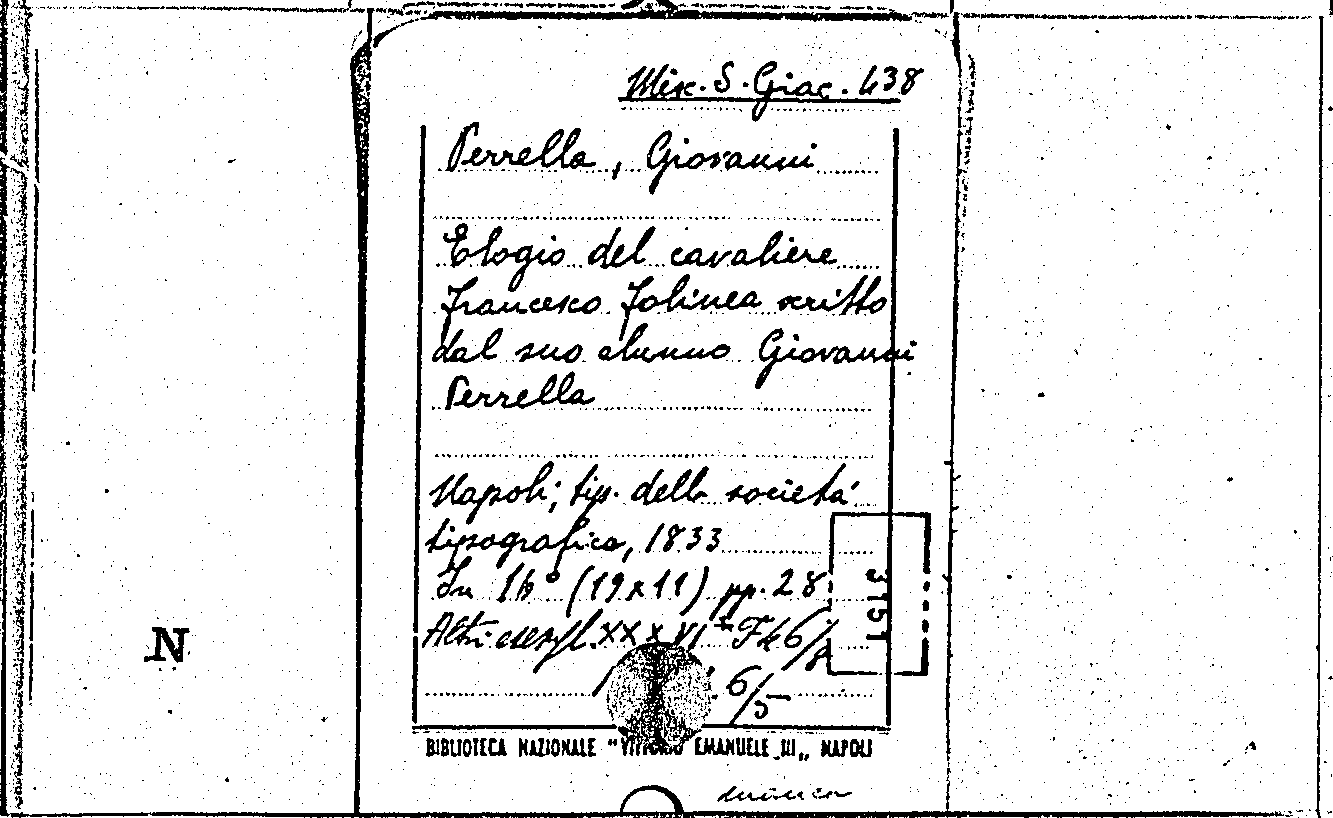 Misc. S. Giac. 438
Perrella, Giovanni
Elogio del cavaliere
Francesco Folinea scritto
dal suo alunno Giovanni
Perrella
Napoli; tip. della società
tipografica, 1833
In 16° (19x11) pp. 28
Altri esempl. XXXVI F 46/8
6/5
3151
N
BIBLIOTECA NAZIONALE "VITTORIO EMANUELE III„ NAPOLI
manca